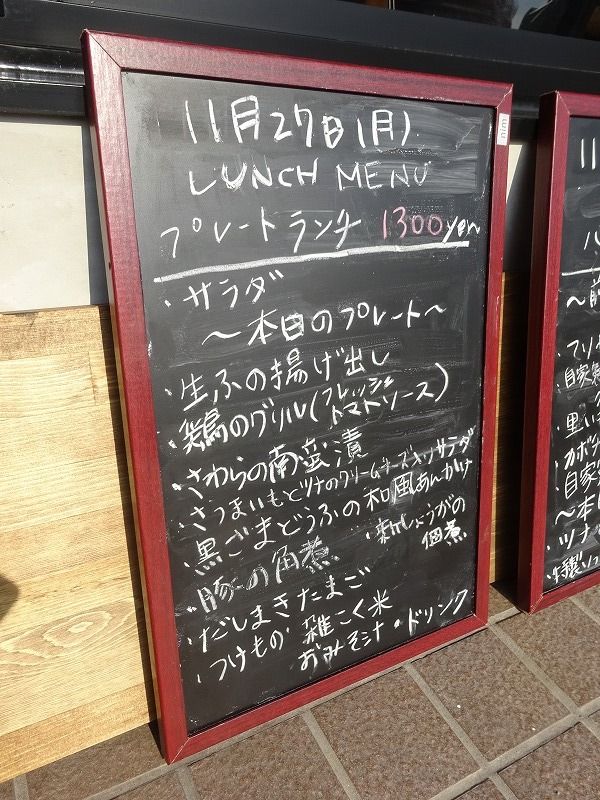 11月27日(月)
LUNCH MENU
プレートランチ 1300yen
・サラダ
～本日のプレート～
・生ふの揚げ出し
・鶏のグリル(フレッシュトマトソース)
・さわらの南蛮漬
・さつまいもとツナのクリームチーズ入りサラダ
・黒ごまどうふの和風あんかけ
・豚の角煮 ・新しょうがの佃煮
・だしまきたまご
・つけもの・雑こく米
おみそ汁・ドリンク
11
～前
・フリッ
自家製
・黒い
・カボチ
自家
～本日
・ツナの
・特製ソ